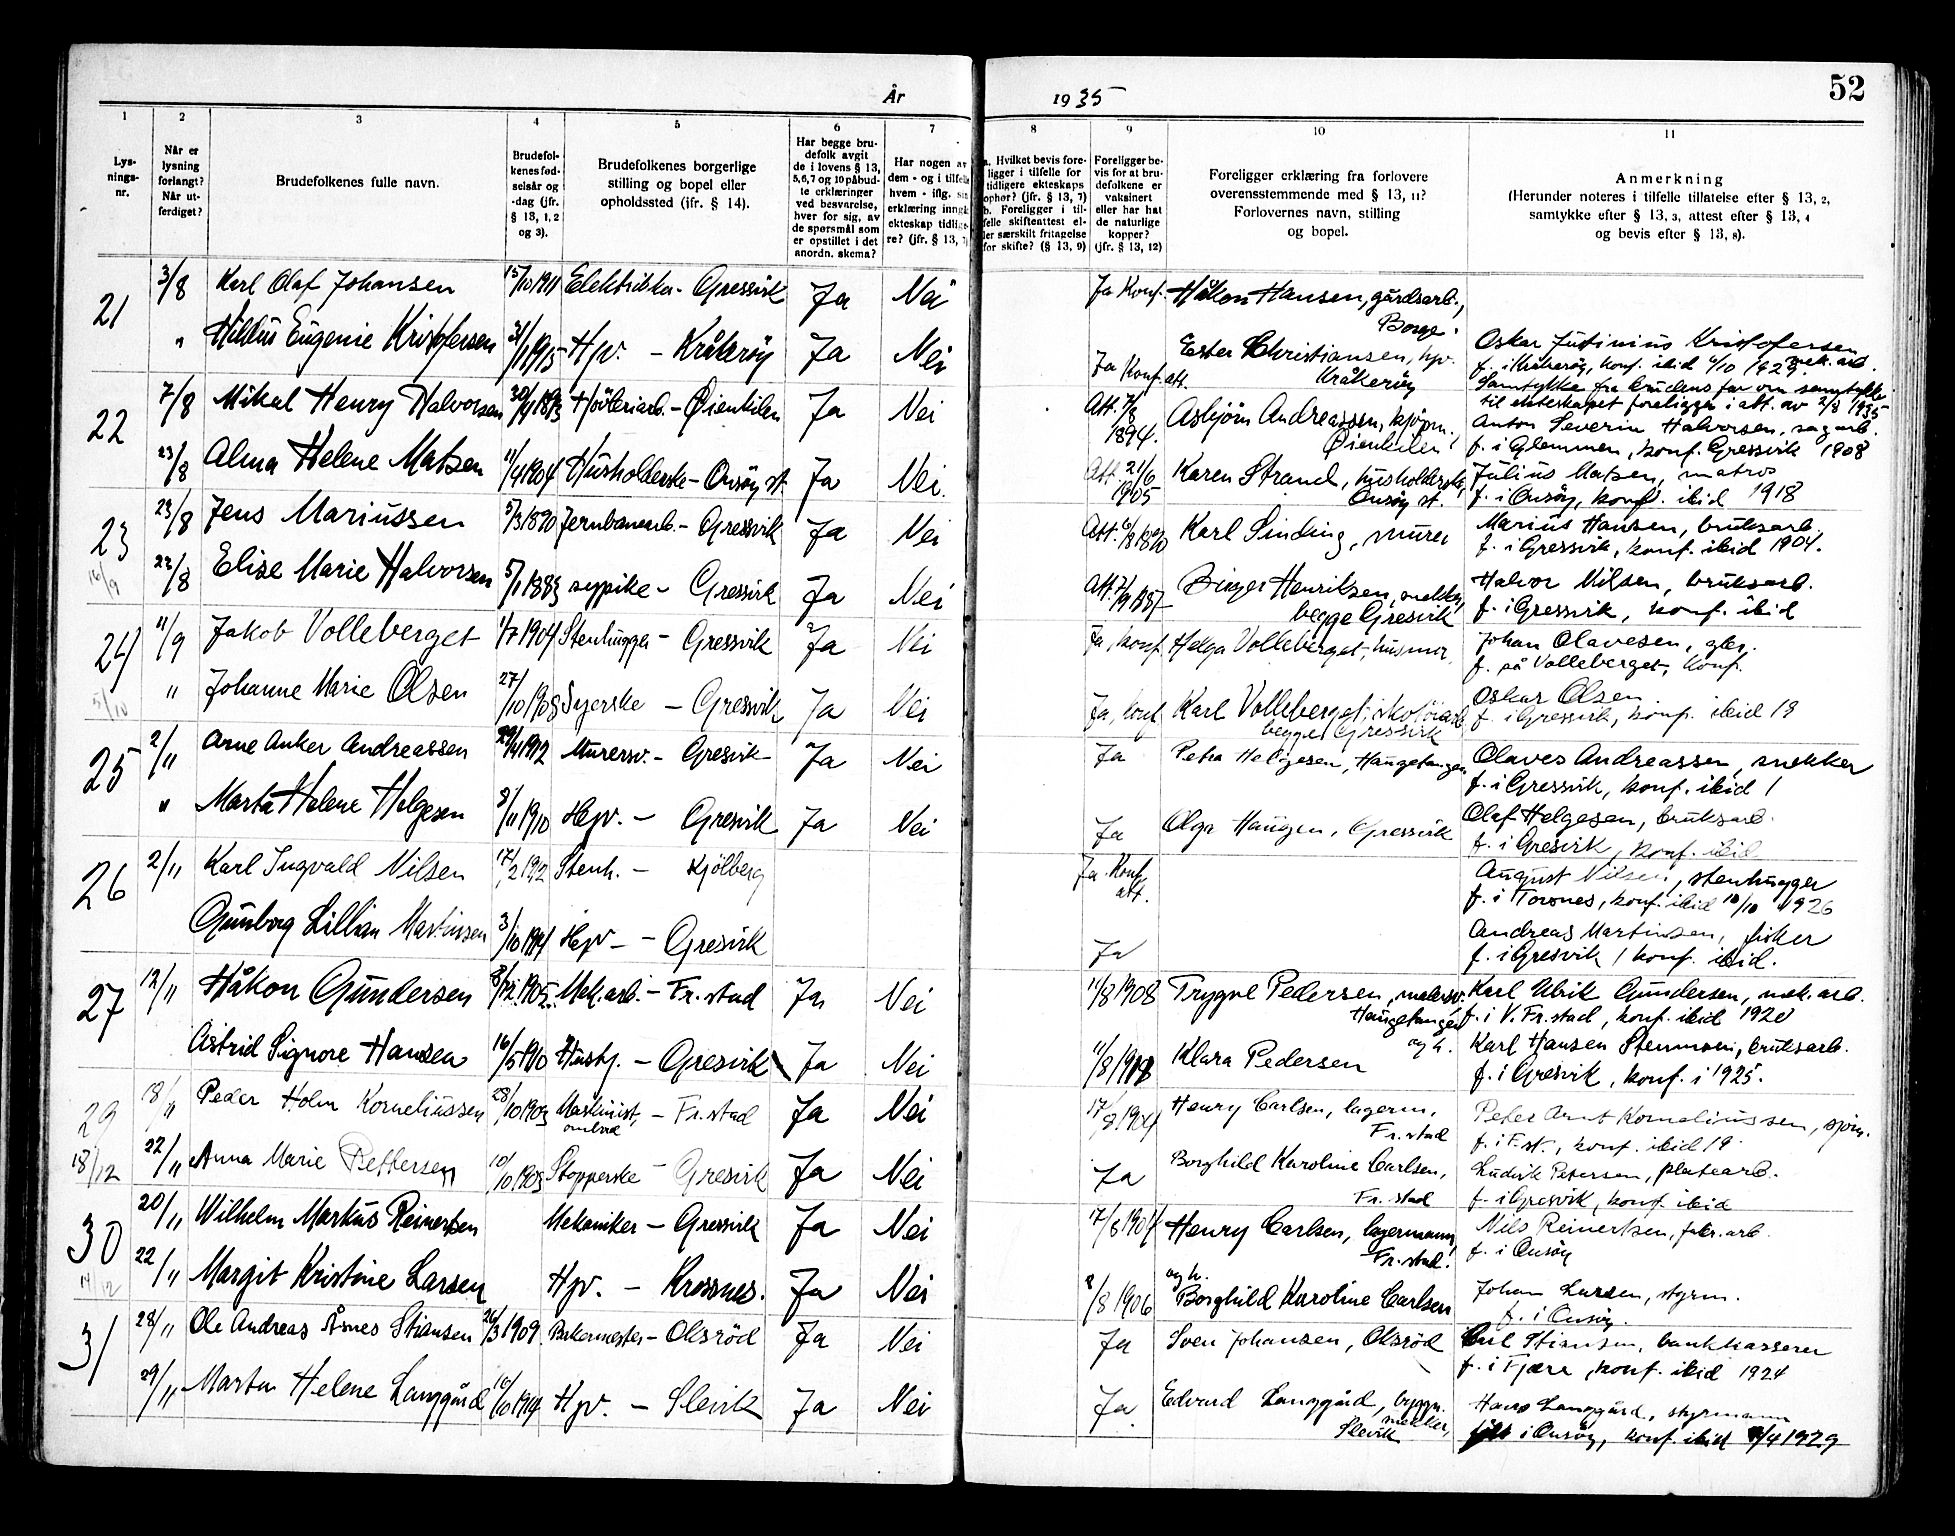 År 1935
52
1 2 3 4 5 6 7 8 9 10 11
Lys-
nings-
nr.
Når er
lysning
forlangt?
Når ut-
ferdiget?
Brudefolkenes fulle navn.
Brudefol-
kenes fød-
selsår og
-dag (jfr.
§ 13, 1, 2
og 3).
Brudefolkenes borgerlige
stilling og bopel eller
opholdssted (jfr. § 14).
Har begge bru-
defolk avgit
de i lovens § 13,
5,6,7 og 10 påbud-
te erklæringer
ved besvarelse,
hver for sig, av
de spørsmål som
er opstillet i det
anordn. skema?
Har nogen av
dem - og i tilfelle
hvem - iflg. sin
erklæring inngått
ekteskap tidlige-
re? (jfr. § 13,
a. Hvilket bevis fore-
ligger i tilfelle for
tidligere ekteskaps
ophør? (jfr. § 13, 7)
b. Foreligger i til-
felle skifteattest el-
ler særskilt fritagelse
for skifte? (§ 13, 9)
Foreligger be-
vis for at bru-
defolkene er
vaksinert
eller har hat
de naturlige
kopper?
(jfr. § 13, 12)
Foreligger erklæring fra forlovere
overensstemmende med § 13, 11?
Forlovernes navn, stilling
og bopel.
Anmerkning
(Herunder noteres i tilfelle tillatelse efter § 13, 2,
samtykke efter § 13, 3, attest efter § 13, 4
og bevis efter § 13, 8).
21 3/8 Karl Olaf Johansen 15/10 1911 Gressvik Ja Nei Ja Konf. Håkon Hansen, gårdsarb.,
Borge.
" Eugenie Kristofersen 31/1 1915 Hpv. – Kråkerøy Ja Nei Ja Konf. att. Ester Christiansen, hpv.
Kråkerøy
Oskar Justinius Kristofersen
mek. arb.
f. i Kråkerøy, konf. ibid 4/10 1929
Samtykke fra brudens far om samtykke
til ekteskapet foreligger i att. av 2/8 1935
22 7/8 Mikal Henry Halvorsen Høvleriarb. – Øienkilen Ja Nei Att. 7/8
1894. Asbjørn Andreassen, kjøpm.
Øienkilen
Anton Severin Halvorsen, sagarb.
f. i Glemmen, konf. Gressvik 1908
23/8 Alma Helene Matsen 11/4 1904 Husholderske – Onsøy st. Ja Nei. Att. 21/6
1905 Karen Strand, husholderske,
Onsøy st.
Julius Matsen, matros
f. i Onsøy, konf. ibid 1918
23 23/8 Jens Mariussen 5/3 1890 Jernbanearb. – Gressvik Ja Nei Karl Sinding, murer
Marius Hansen, bruksarb.
f. i Gressvik, konf. ibid 1904.
16/9 22/8 Elise Marie Halvorsen 5/1 1883 sypike – Gressvik Ja Nei Birger Henriksen, snekker,
begge Gresvik
Halvor Nilsen, bruksarb.
f. i Gressvik, konf. ibid
24 11/9 Jakob Volleberget 1/7 1904 Stenhugger – Gressvik Ja Nei Ja, konf. Helga Volleberget, husmor,
Johan Olavesen, gbr.
f. på Volleberget, konf.
5/10 " Johanne Marie Olsen 27/10 1908 Syerske – Gressvik Ja Nei Ja, konf Karl Volleberget, skotøiarb.
begge Gressvik
Oskar Olsen
f. i Gressvik, konf. ibid 19
25 2/11 Arne Anker Andreassen 29/4 1912 Murersv. – Gresvik Ja Nei Ja Petra Helgesen, Haugetangen
Olaves Andreassen, snekker
f. i Gressvik, konf. ibid 1
" Marta Helene Helgesen 8/11 1910 Hpv. – Gresvik Ja Nei Ja Olga Haugen, Gressvik
Olaf Helgesen, bruksarb.
f. i Gresvik, konf. ibid
26 2/11 Karl Ingvald Nilsen 17/2 1912 Stenh. – Kjølberg Ja Konf.
att.
August Nilsen, stenhugger
f. i Torsnes, konf. ibid 10/10 1926
Gunborg Lillian Martinsen 3/10 1914 Hpv – Gresvik Ja
Andreas Martinsen, fisker
f. i Gresvik, konf. ibid.
27 12/11 Håkon Gundersen 8/12. 1905. Mek. arb. – Fr.stad Ja Nei 11/8 1908 Trygve Pedersen, malersv.
Haugetangen
og h.
Karl Ulrik Gundersen, mek. arb.
f. i V. Fr.stad, konf. ibid 1920
Astrid Signore Hansen 16/5 1910 Gresvik Ja Nei Klara Pedersen
Karl Hansen Stenmoen, bruksarb.
f. i Gresvik, konf. i 1925.
29 18/11 Peder Holm Korneliussen 28/10 1903 Maskinist, – Fr.stad
ombord Ja Nei 17/8 1904 Henry Carlsen, lagerm.,
Fr.stad
Peter Arnt Korneliussen, sjøm.
f. i F.st., konf. ibid 19
18/12 22/11 Anna Marie Pettersen 10/10 1903 Stopperske – Gresvik Ja Nei Ja Borghild Karoline Carlsen,
Fr.stad
Ludvik Petersen, platearb.
f. i Gresvik, konf. ibid
30 20/11 Wilhelm Markus Reinertsen Mekaniker – Gressvik Ja Nei 17/8 1904 Henry Carlsen, lagermann,
Fr.stad.
Nils Reinertsen, fabr. arb.
f. i Onsøy
14/12 22/11 Margit Kristine Larsen Hpv. – Krossnes. Ja Nei 8/8 1906 og h.
Borghild Karoline Carlsen
Johan Larsen, styrm.
f. i Onsøy.
31 28/11 Ole Andreas Åsnes Stiansen 26/3 1909. Bakermester – Oksrød Ja Nei Ja Sven Johansen, Oksrød
Stiansen, bankkasserer
f. i Fjære, konf. ibid 1924
29/11 Marta Helene Langgård Hpv. – Slevik Ja Nei Ja. Edvard Langgård, byggn.
snekker,
Slevik
Hans Langgård, styrmann
i Onsøy, konf. ibid /4 1929